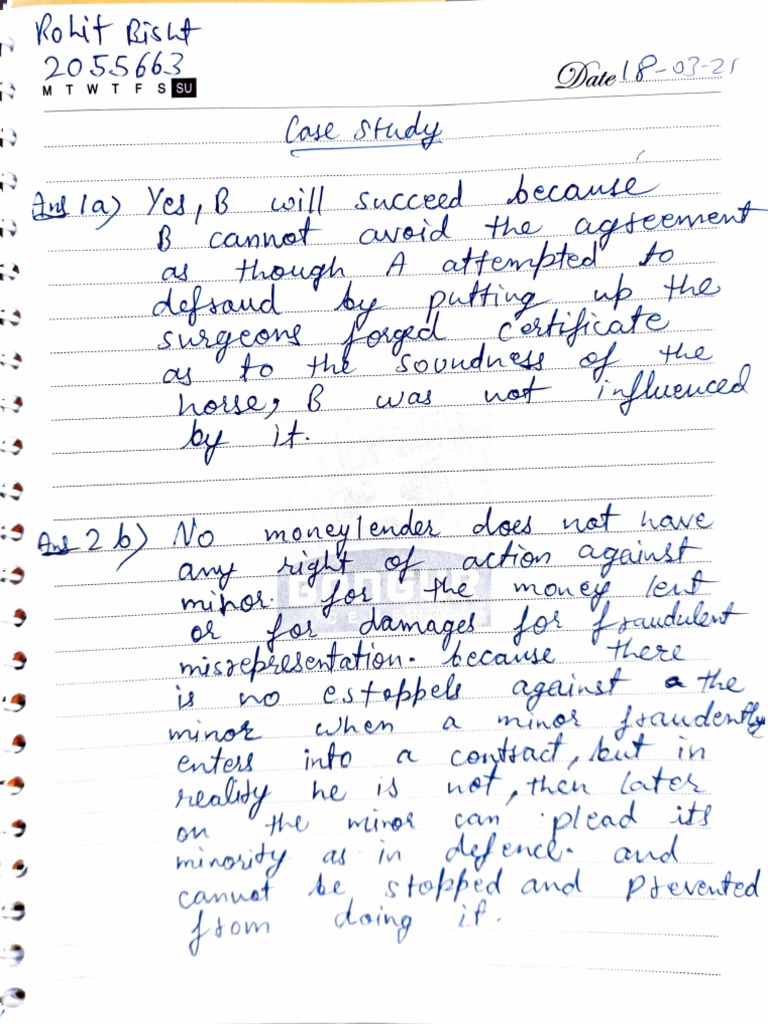 Rohit Bisht
2055663
M T W T F S SU
Date 18-03-21
Case Study
Ans 1a) Yes, B will succeed because
B cannot avoid the agreement
as though A attempted to
defraud by putting up the
surgeons forged certificate
as to the soundness of the
horse, B was not influenced
by it.
Ans 2 b) No moneylender does not have
any right of action against
minor. for the money lent
or for damages for fraudulent
misrepresentation. because there
is no estoppels against the
minor when a minor fraudently
enters into a contract, but in
reality he is not, then later
on the minor can plead its
minority as in defence. and
cannot be stopped and prevented
from doing it.